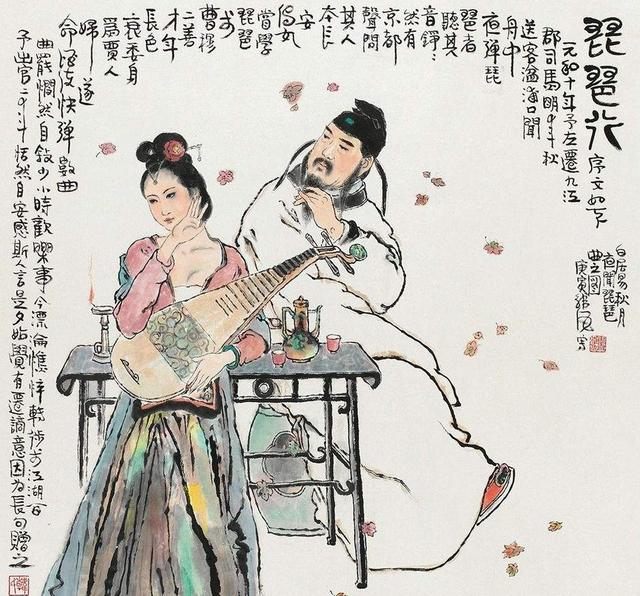 琵琶行 序文如下
元和十年予左遷九江
郡司馬明年秋
送客湓浦口聞
舟中
夜彈琵
琶者
聽其
音錚〻
然有
京都
聲問
其人
本長
安
倡女
嘗學
琵琶
於
曹穆
二善
才年
長色
衰委身
為賈人
婦遂
命酒使快彈數曲
曲罷憫然自敘少小時歡樂事今漂淪憔悴轉徙於江湖
予出官二年恬然自安感斯人言是夕始覺有遷謫意因為長句贈之
白居易秋月
夜聞琵琶
曲之圖
庚寅 寫